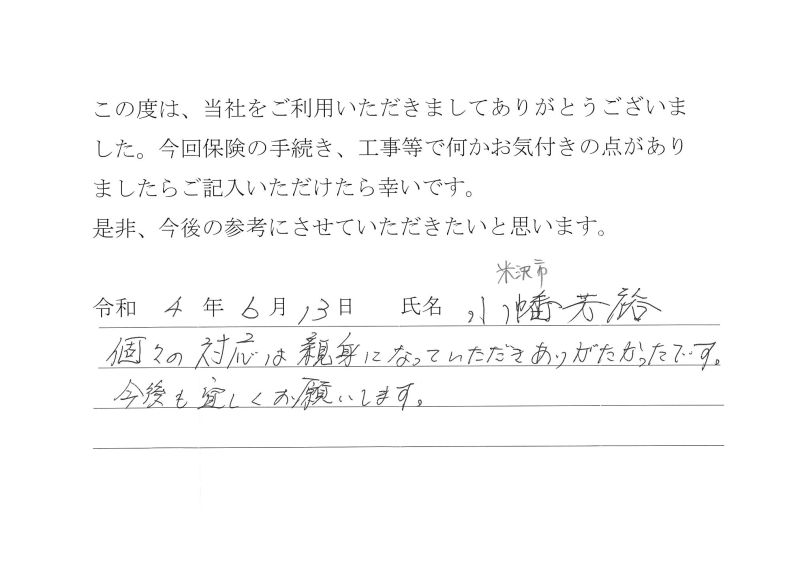 この度は、当社をご利用いただきましてありがとうございま
した。今回保険の手続き、工事等で何かお気付きの点があり
ましたらご記入いただけたら幸いです。
是非、今後の参考にさせていただきたいと思います。
米沢市
令和 4 年 6 月 13 日 氏名 小幡芳裕
個々の対応は親身になっていただきありがたかったです。
今後も宜しくお願いします。